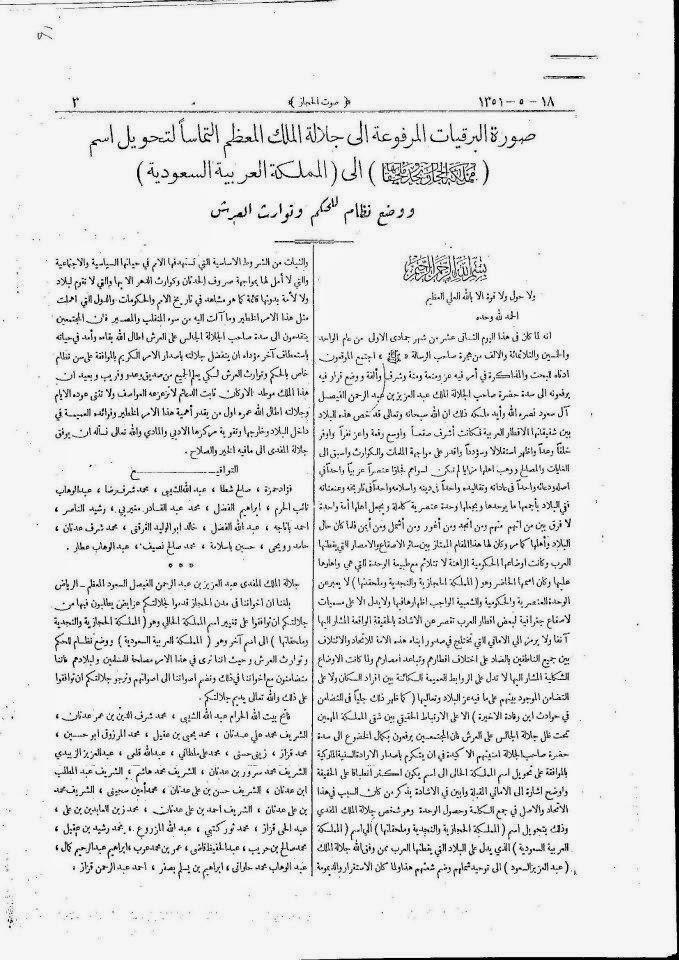 ١٨ – ٥ – ١٣٥١
﴿ صوت الحجاز ﴾
٣
صورة البرقيات المرفوعة الى جلالة الملك المعظم التماساً لتحويل اسم
( مملكة الحجاز ونجد وملحقاتها ) الى ( المملكة العربية السعودية )
ووضع نظام للحكم وتوارث العرش
بسم الله الرحمن الرحيم
ولا حول ولا قوة الا بالله العلي العظيم
الحمد لله وحده
انه لما كان في هذا اليوم الثاني عشر من شهر جمادى الاولى من عام الواحد
والخمسين والثلاثمائة والالف من هجرة صاحب الرسالة « ﷺ » اجتمع الموقعون
ادناه للبحث والمذاكرة في أمر فيه عز ومنعة ومنة وشرف وألفة ووضع قرار فيه
يرفعونه الى سدة حضرة صاحب الجلالة الملك عبد العزيز بن عبد الرحمن الفيصل
آل سعود نصره الله وأيد ملكه ذلك ان الله سبحانه وتعالى قد خص هذه البلاد
بين شقيقاتها الاقطار العربية فكانت أشرف صقعاً واوسع رقعة واعز نفراً واوفر
خلقاً وعداً واظهر استقلالا وسؤدداً واقدر على مواجهة الملمات والكوارث واسبق الى
الغايات والمصالح ووهب اهلها مزايا لم تكن لسواهم فجاؤا عنصراً عربياً واحداً في
اصله وعاداته واحداً في تقاليده واحداً في دينه واسلامه واحداً في تاريخه وعنعناته
في البلاد بأجمعها ما يوحدها ويجعلها وحدة عنصرية كاملة ويجعل اهلها أمة واحدة
لا فرق بين من أتهم منهم ومن انجد ومن أغور ومن أشمل ومن أيمن لهذا كان حال
البلاد وأهلها كما مر وكان لها هذا المقام الممتاز بين سائر الاصقاع والامصار التي يقطنها
العرب وكانت اوضاعها الحكومية الراهنة لا تتلاءم مع طبيعة الوحدة التي هي واهلها
عليها وكان اسمها الحاضر وهو ( المملكة الحجازية والنجدية وملحقاتها ) لا يعبر عن
الوحدة العنصرية والحكومية والشعبية الواجب اظهارها فيها ولا يدل الا على مسميات
لاصقاع جغرافية لبعض اقطار العرب تقصر عن الاشادة بالحقيقة الواقعة المشار اليها
آنفا ولا يرمز الى الاماني التي تختلج في صدور ابناء هذه الامة للاتحاد والائتلاف
بين جميع الناطقين بالضاد على اختلاف اقطارهم وتباعد أمصارهم ولما كانت الاوضاع
الشكلية المشار اليها لا تدل على الروابط العميمة الكائنة بين افراد السكان ولا على
التضامن الموجود بينهم على ما فيه عز البلاد وتعاليها ( كما ظهر ذلك جلياً في التضامن
في حوادث ابن رفادة الاخيرة ) الا على الارتباط الحقيقي بين شقي المملكة المهمين
تحت ظل جلالة الجالس على العرش فان المجتمعين يرفعون بكمال الخضوع الى سدة
حضرة صاحب الجلالة امنيتهم الاكيدة في ان يتكرم باصدار الارادة السنية الملوكية
بالموافقة على تحويل اسم المملكة الحالي الى اسم يكون اكثر انطباقا على الحقيقة
واوضح اشارة الى الاماني المقبلة وابين في الاشادة بذكر من كان السبب في هذا
الاتحاد والاصل في جمع الكلمة وحصول الوحدة وهو شخص جلالة الملك المفدى
وذلك بتحويل اسم ( المملكة الحجازية والنجدية وملحقاتها ) الى اسم ( المملكة
العربية السعودية ) الذي يدل على البلاد التي يقطنها العرب ممن وفق الله جلالة الملك
( عبد العزيز السعود ) الى توحيد شملهم وضم شعثهم هذا ولما كان الاستقرار والديمومة
والثبات من الشروط الاساسية التي تستهدفها الامم في حياتها السياسية والاجتماعية
والتي لا أمل لها بمواجهة صروف الحدثان وكوارث الدهر الا بها والتي لا تقوم لبلاد
ولا لأمة بدونها قائمة كما هو مشاهد في تاريخ الامم والحكومات والدول التي اهملت
مثل هذا الامر الخطير وما آلت اليه من سوء المنقلب والمصير فان المجتمعين
يتقدمون الى سدة صاحب الجلالة الجالس على العرش اطال الله بقاءه وأمد في حياته
باستعطاف آخر مؤداه ان يتفضل جلالته باصدار الامر الكريم بالموافقة على سن نظام
خاص بالحكم وتوارث العرش لكي يعلم الجميع من صديق وعدو وقريب وبعيد ان
هذا الملك موطد الاركان ثابت الدعائم لا تزعزعه العواصف ولا تثني عوده الايام
وجلالته اطال الله عمره اول من يقدر أهمية هذا الامر الخطير وفوائده العميمة في
داخل البلاد وخارجها وتقوية مركزها الادبي والمادي والله تعالى نسأله ان يوفق
جلالة المفدى الى مافيه الخير والصلاح .
التواقيــــــع
فؤاد حمزة ، صالح شطا ، عبد الله الشيبي ، محمد شرف رضا ، عبد الوهاب
نائب الحرم ، ابراهيم الفضل ، محمد عبد القادر مغيربي ، رشيد الناصر ،
احمد باناجه ، عبد الله الفضل ، خالد ابو الوليد القرقني ، محمد شرف عدنان ،
حامد رويحى ، حسين باسلامة ، محمد صالح نصيف ، عبد الوهاب عطار .
* * *
جلالة الملك المفدى عبد العزيز بن عبد الرحمن الفيصل السعود المعظم – الرياض
بلغنا ان اخواننا في مدن الحجاز قدموا لجلالتكم عرايض يطالبون فيها من
جلالتكم الموافقة على تغيير اسم المملكة الحالي وهو ( المملكة الحجازية والنجدية
وملحقاتها ) الى اسم آخر وهو ( المملكة العربية السعودية ) ووضع نظام للحكم
وتوارث العرش وحيث اننا نرى في هذا الامر مصلحة للمسلمين ولبلادهم فاننا
متضامنون مع اخواننا في ذلك ونضم اصواتنا الى اصواتهم ونرجو جلالتكم ان توافقوا
على ذلك والله تعالى يديم جلالتكم.
فاتح بيت الله الحرام عبد الله الشيبى ، محمد شرف الدين بن عمر عدنان ،
الشريف محمد علي عدنان ، محمد يحيى بن عقيل ، محمد المرزوقي ابو حسين ،
محمد قزاز ، زيني حسنى ، محمد علي ملطاني ، عبد الله قلمى ، عبد العزيز الزبيدي
الشريف محمد سرور بن عدنان ، الشريف محمد هاشم ، الشريف عبد المطلب
ابن عدنان ، الشريف حسن بن علي عدنان ، محمد أمين صحيبنى ، الشريف محمد
بن علي عدنان ، الشريف احمد بن علي عدنان ، محمد زين العابدين بن علي ،
عبد الحى قزاز ، محمد نور كتبي ، عبد الله المزروع ، محمد رشيد بن عقيل ،
محمد صالح بن حريب ، عبد الحفيظ قاضى ، عمر بن محمد عرب ، ابراهيم عبد الرحيم كمال ،
عبد الوهاب محمد حلوانى ، ابراهيم بن يسلم بصفر ، احمد عبد الرحمن قزاز ،